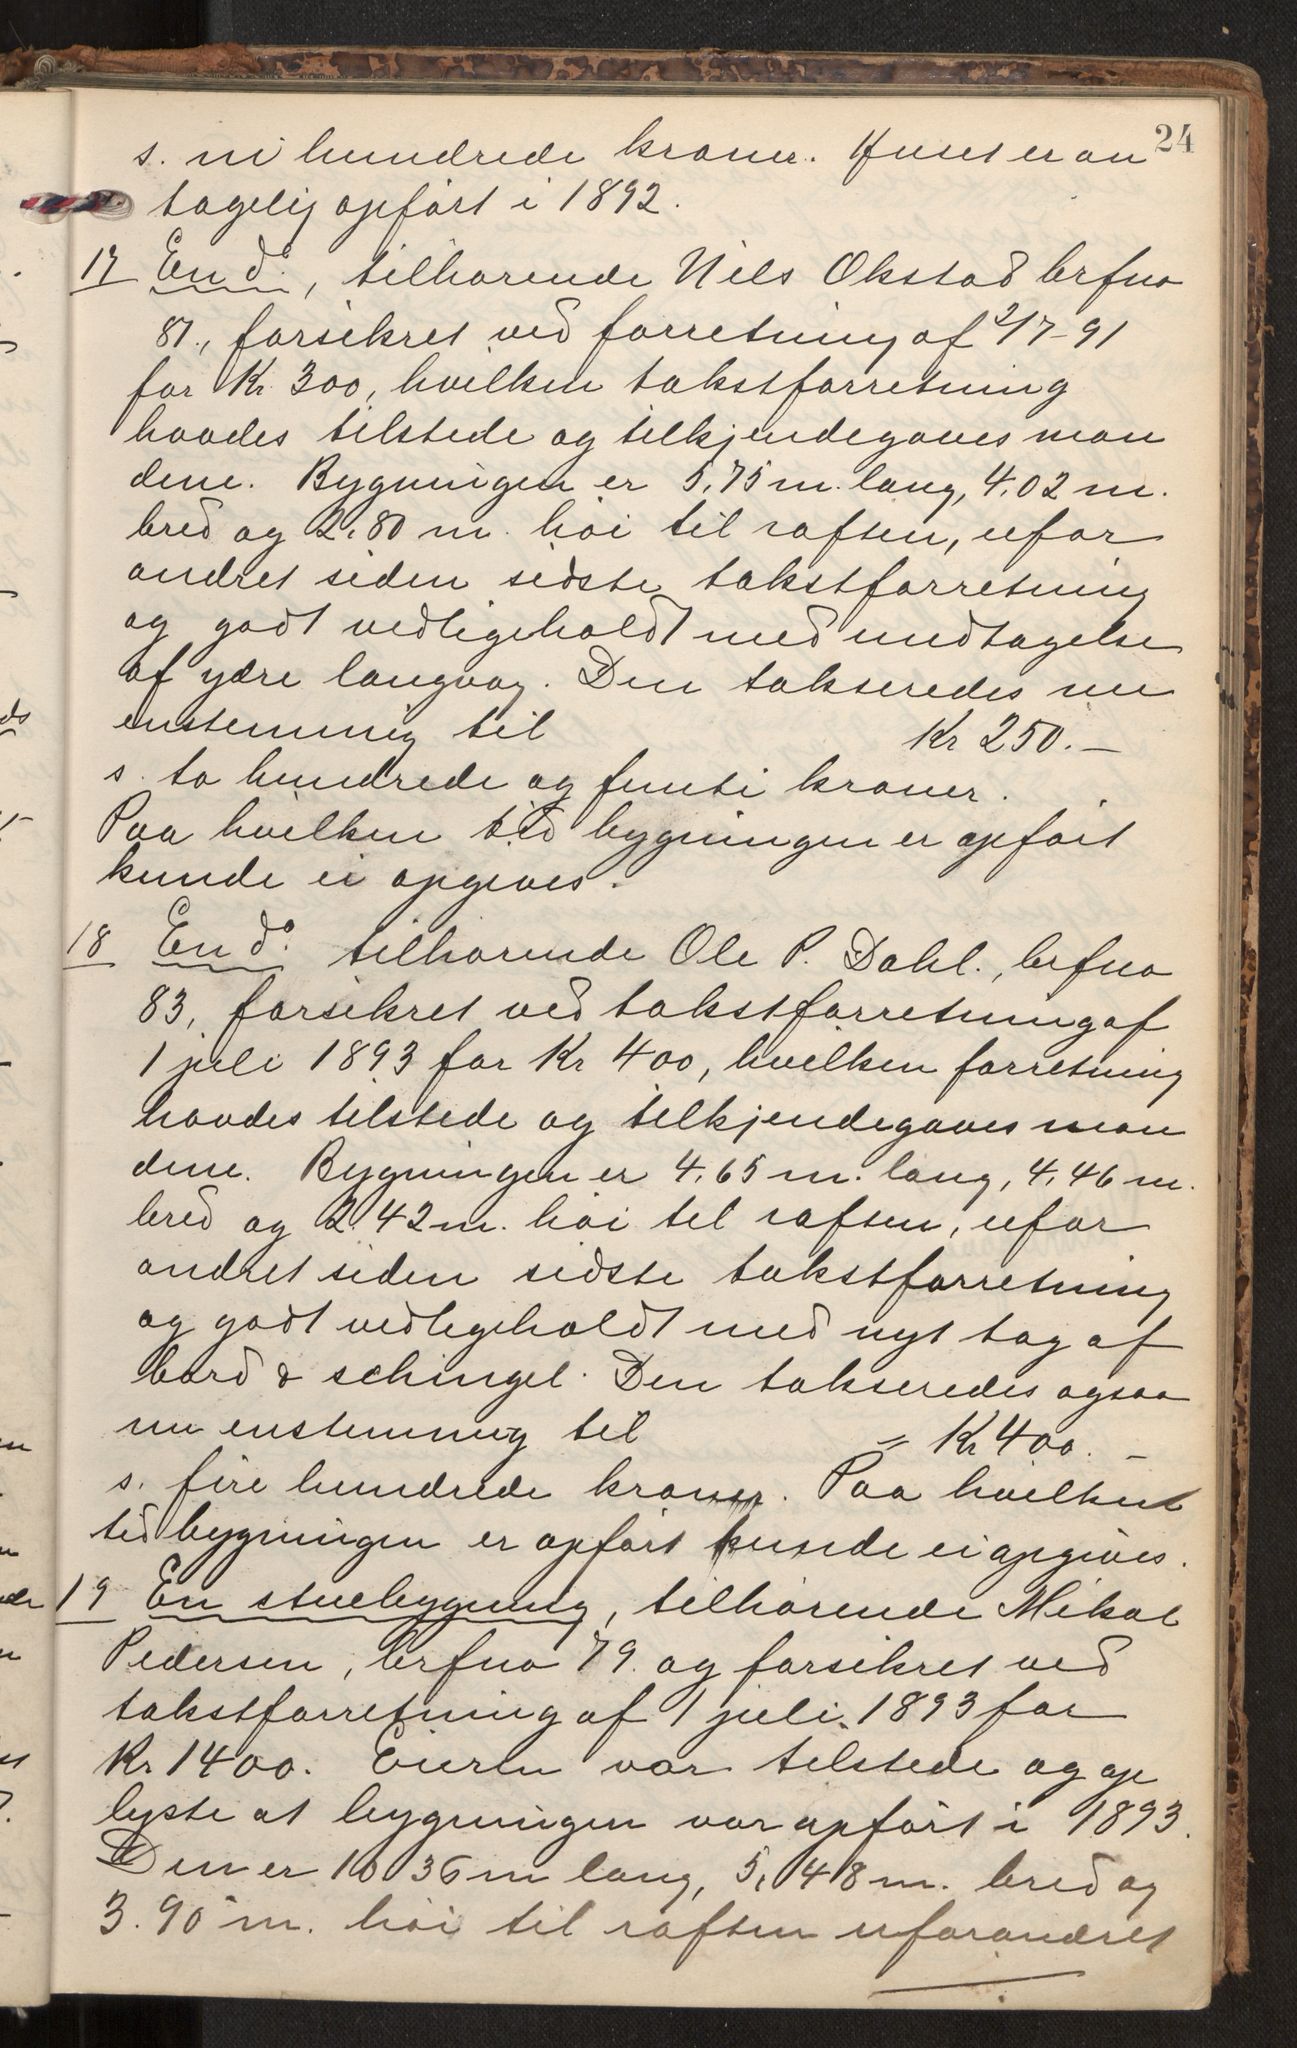 24
s. ni hundrede kroner. Huset er an
tagelig opført i 1892.
17 En do., tilhørende Nils Okstad brfno
81., forsikret ved forretning af 2/7-91
for Kr. 300, hvilken takstforretning
havdes tilstede og tilkjendegaves mæn
dene. Bygningen er 5,75 m. lang, 4,02 m.
bred og 2,80 m. høi til raften, ufor
andret siden sidste takstforretning
og godt vedligeholdt med undtagelse
af ydre langvæg. Den takseredes nu
enstemmig til Kr 250.–
s. to hundrede og femti kroner.
Paa hvilken tid bygningen er opført
kunde ei opgives.
18 En do. tilhørende Ole P. Dahl., brfno
83, forsikret ved takstforretning af
1 juli 1893 for Kr 400, hvilken forretning
havdes tilstede og tilkjendegaves mæn
dene. Bygningen er 4,65 m. lang, 4,46 m.
bred og 2,42 m. høi til raften, ufor
andret siden sidste takstforretning
og godt vedligeholdt med nyt tag af
bord & schingel. Den takseredes ogsaa
nu enstemmig til " Kr 400.–
s. fire hundrede kroner. Paa hvilken
tid bygningen er opført kunde ei opgives.
19 En stuebygning, tilhørende Mikal
Pedersen, brfno 79. og forsikret ved
takstforretning af 1 juli 1893 for
Kr 1400. Eieren var tilstede og op
lyste at bygningen var opført i 1893.
Den er 10 36 m lang, 5,48 m. bred og
3.90 m. høi til raften uforandret